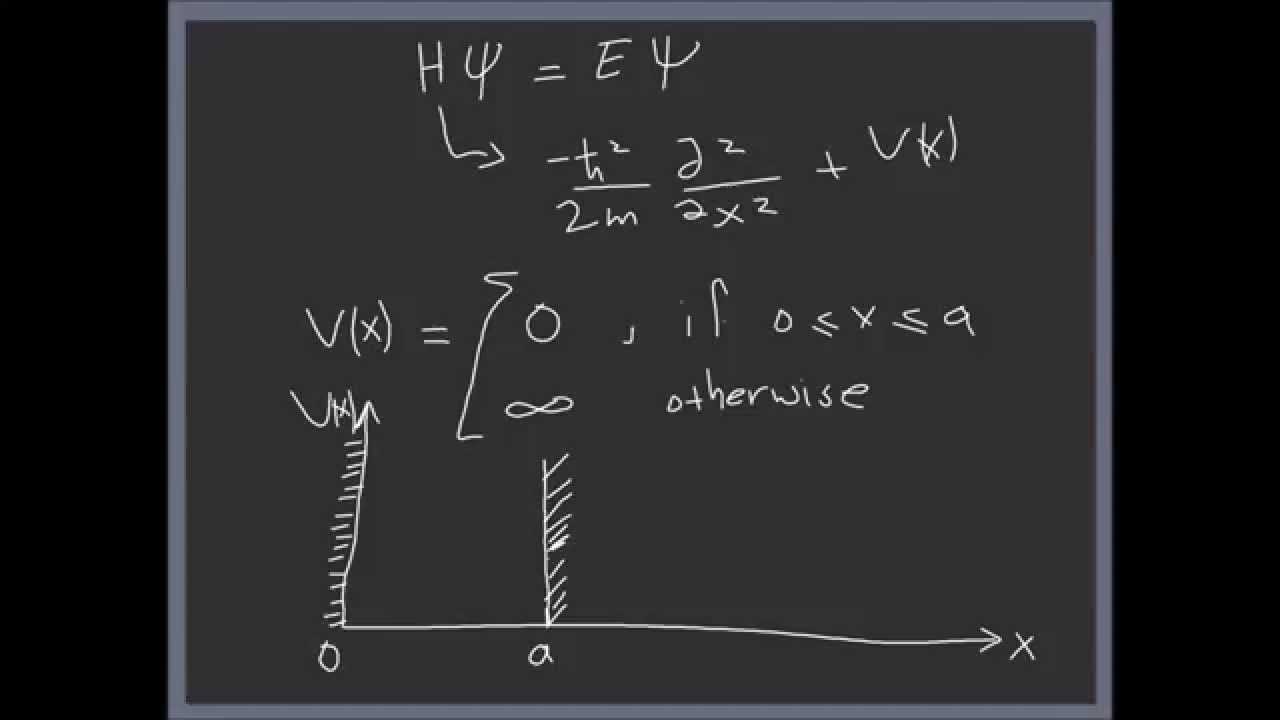 Hψ = Eψ
↳ -ħ²/2m ∂²/∂x² + V(x)
V(x) = { 0 , if 0 ≤ x ≤ a
∞ otherwise
V(x)
0 a x